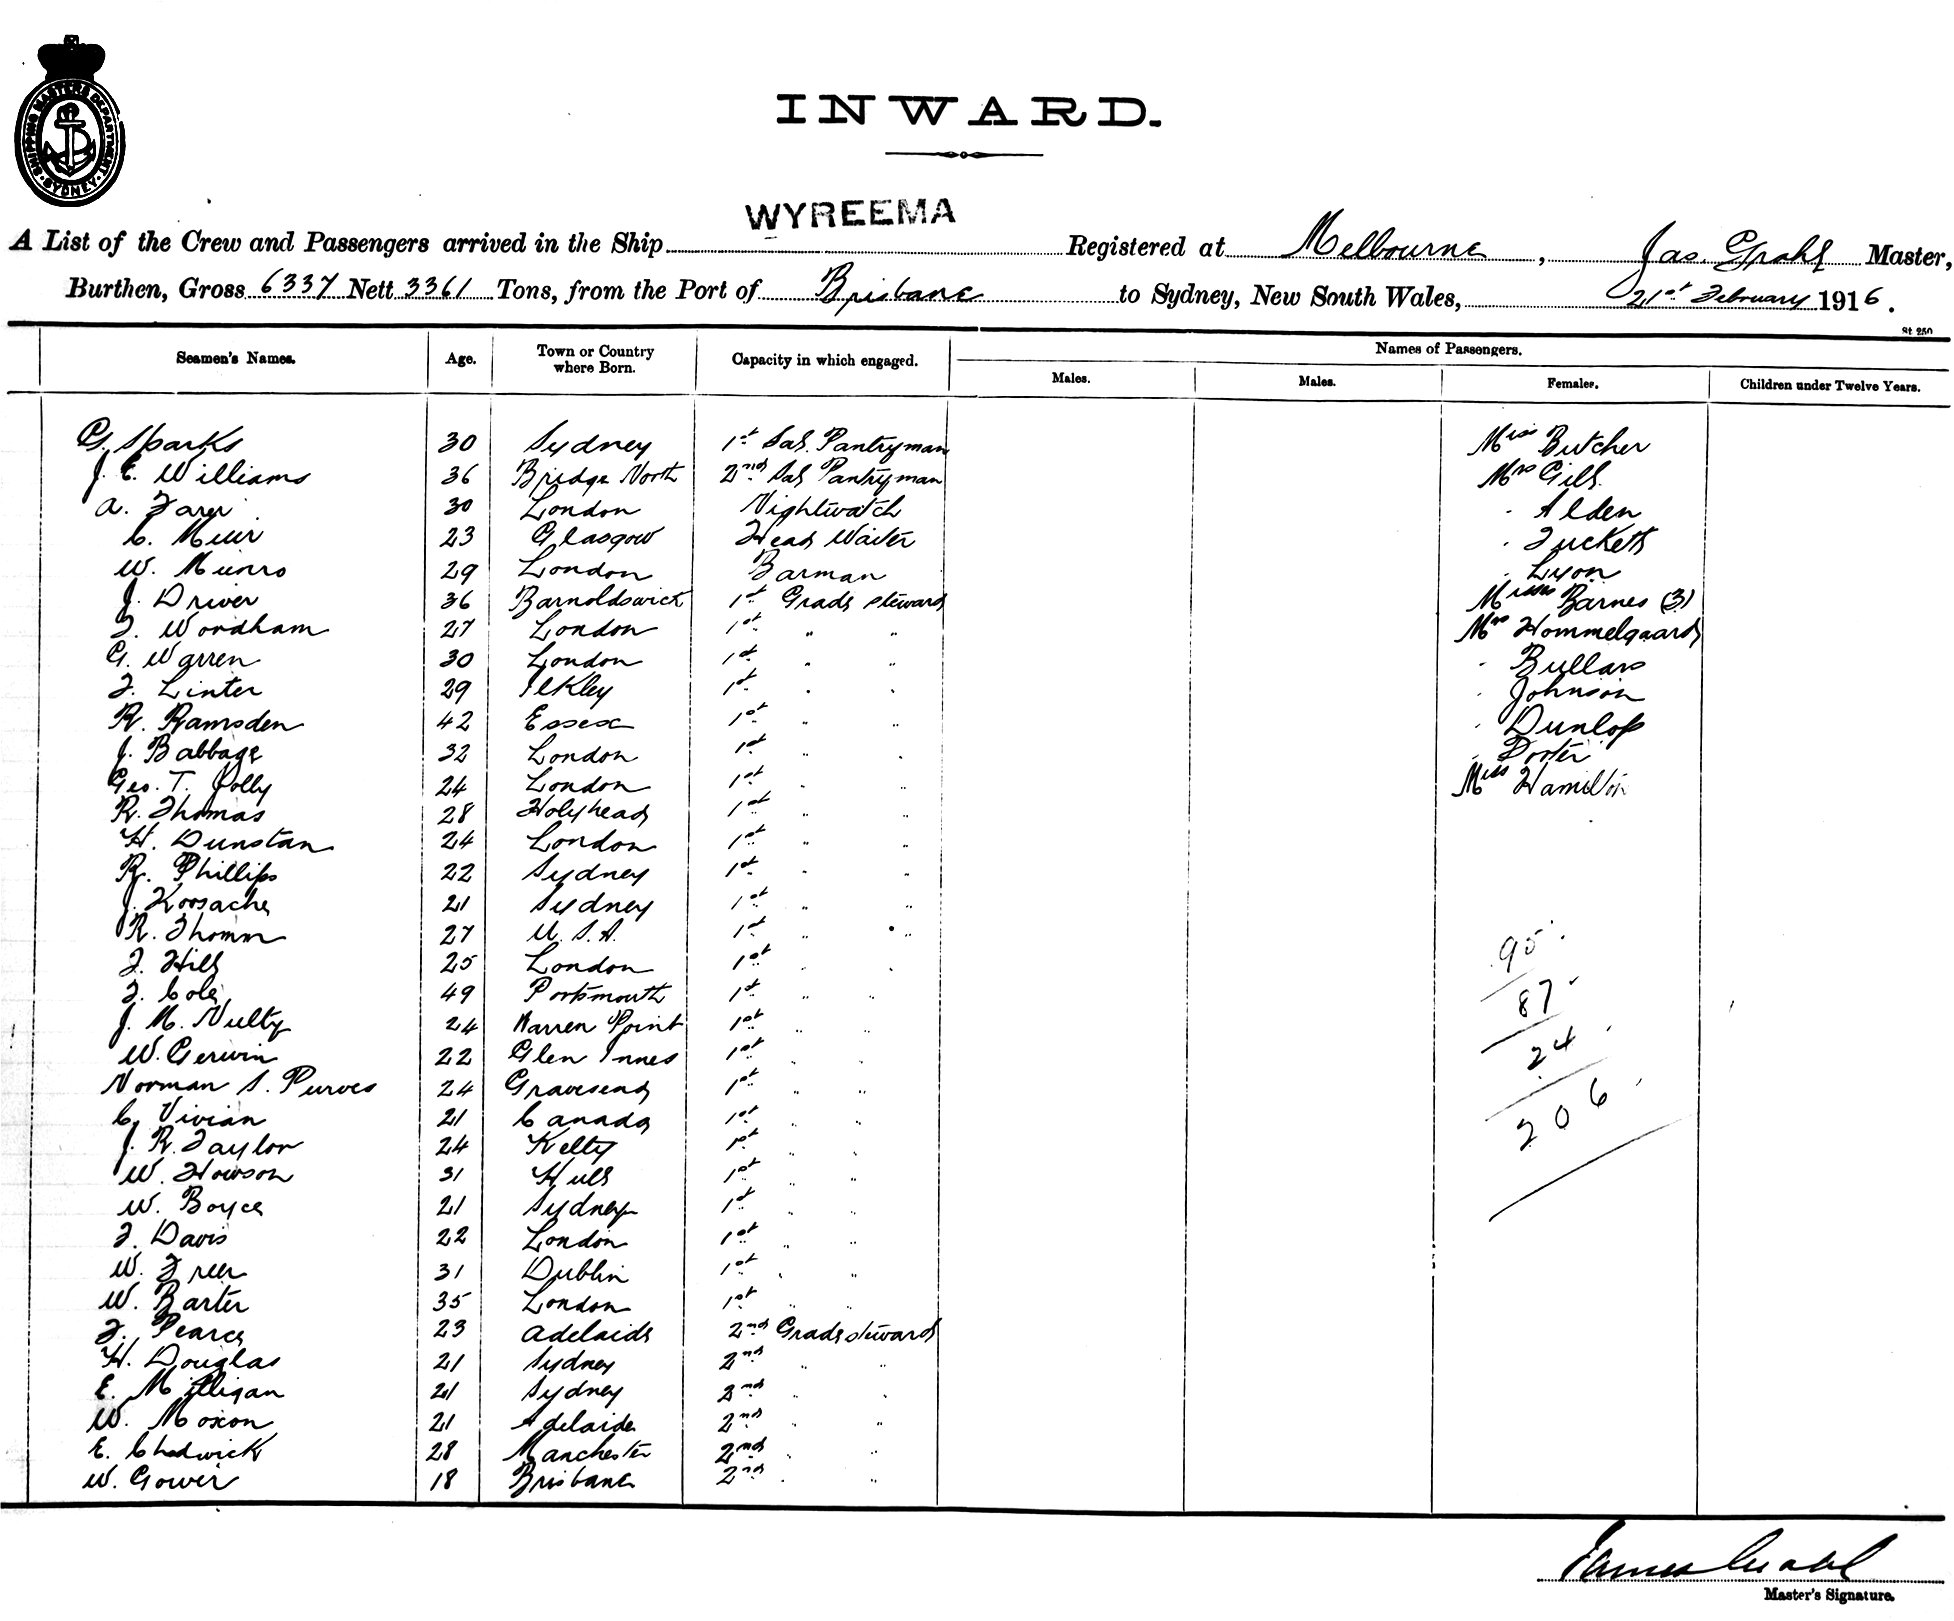 SHIPPING MASTERS DEPARTMENT
SYDNEY
INWARD.
A List of the Crew and Passengers arrived in the Ship WYREEMA Registered at Melbourne, Jas. Grahl Master,
Burthen, Gross 6337 Nett 3361 Tons, from the Port of Brisbane to Sydney, New South Wales, 21st February 1916.
St 250
Seamen's Names. Age. Town or Country where Born. Capacity in which engaged. Names of Passengers.
Males. Males. Females. Children under Twelve Years.
G. Sparks 30 Sydney 1st Sal. Pantryman Miss Butcher
J. E. Williams 36 Bridge North 2nd Sal Pantryman Mrs Gill
A. 30 London Nightwatch " Alden
C. Muir 23 Glasgow Head Waiter " Tuckett
W. Munro 29 London Barman " Lyon
J. Driver 36 Barnoldswick 1st Grade steward Misses Barnes (3)
F. Wordham 27 London 1st " " Mrs Hommelgaard
G. Warren 30 London 1st " " " Bullard
F. Linter 29 Ilkley 1st " " " Johnson
R. Ramsden 42 Essex 1st " " " Dunlop
J. Babbage 32 London 1st " " " Porter
Geo. T. Jolly 24 London 1st " " Miss Hamilton
R. Thomas 28 Holyhead 1st " "
H. Dunstan 24 London 1st " "
R. Phillips 22 Sydney 1st " "
J. 21 Sydney 1st " "
R. Thomm 27 U.S.A. 1st " "
F. Hill 25 London 1st " "
F. Cole 49 Portsmouth 1st " "
J. McNulty 24 Warren Point 1st " "
W. Gerwin 22 Glen Innes 1st " "
Norman S. Purves 24 Gravesend 1st " "
C. Vivian 21 Canada 1st " "
J. R. Taylor 24 Kelty 1st " "
W. Howson 31 Hull 1st " "
W. Boyce 21 Sydney 1st " "
F. Davis 22 London 1st " "
W. Freer 31 Dublin 1st " "
W. Barter 35 London 1st " "
F. Pearce 23 Adelaide 2nd Grade steward
H. Douglas 21 Sydney 2nd " "
E. Milligan 21 Sydney 2nd " "
W. Moxon 21 Adelaide 2nd " "
E. Chadwick 28 Manchester 2nd " "
W. Gower 18 Brisbane 2nd " "
95
87
24
206
James Grahl
Master's Signature.